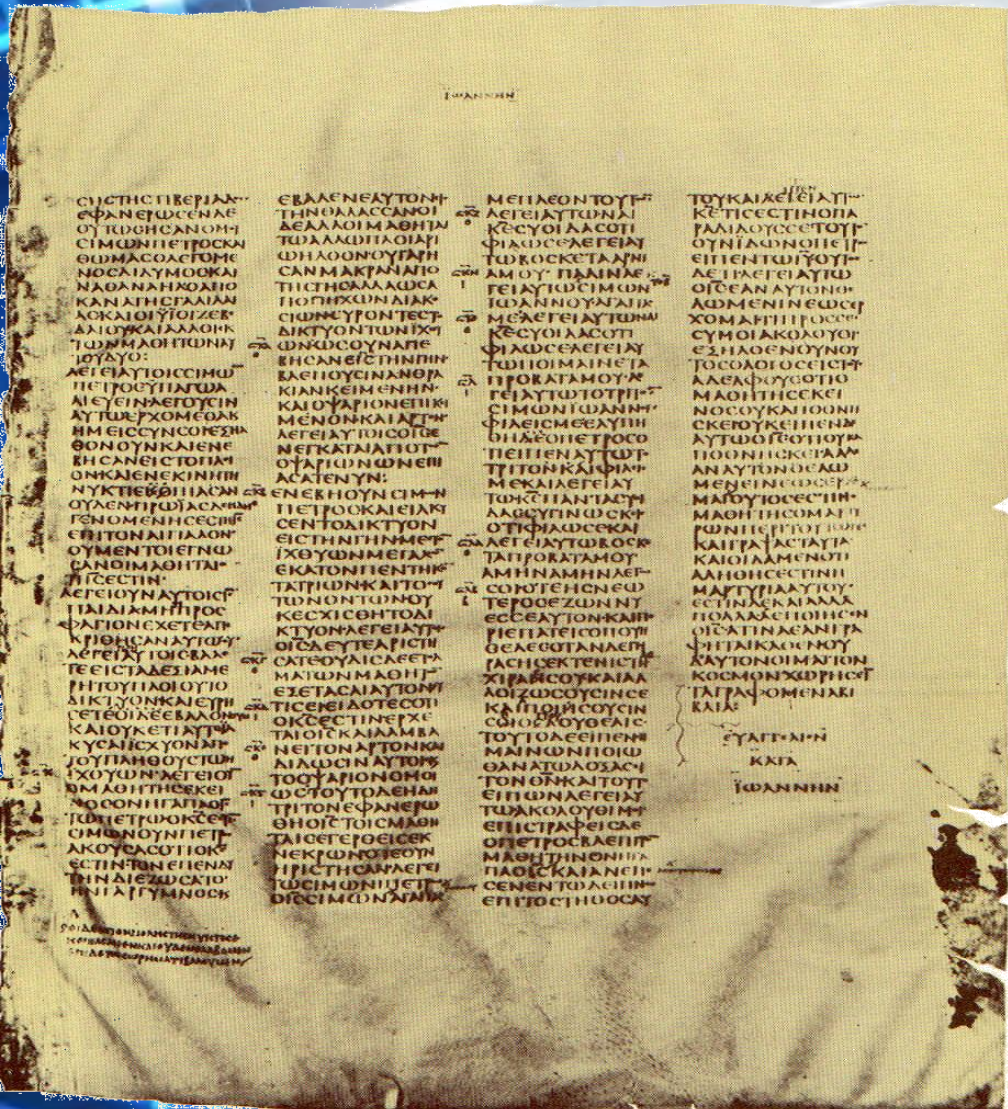 ΪΩΑΝΝΗΝ
ϹΗϹΤΗϹΤΙΒΕΡΙΑΔ
ΕΦΑΝΕΡΩϹΕΝΔΕ
ΟΥΤΩϹΗϹΑΝΟΜ
ϹΙΜΩΝΠΕΤΡΟϹΚΑΙ
ΘΩΜΑϹΟΛΕΓΟΜΕ
ΝΟϹΔΙΔΥΜΟϹΚΑΙ
ΝΑΘΑΝΑΗΛΟΑΠΟ
ΚΑΝΑΤΗϹΓΑΛΙΛΑΙ
ΑϹΚΑΙΟΙΫΪΟΙΖΕΒΕ
ΔΑΙΟΥΚΑΙΑΛΛΟΙΚ
ΤΩΝΜΑΘΗΤΩΝΑΥ
ΤΟΥΔΥΟ:
ΛΕΓΕΙΑΥΤΟΙϹϹΙΜΩ
ΠΕΤΡΟϹΫΠΑΓΩΑ
ΛΙΕΥΕΙΝΛΕΓΟΥϹΙΝ
ΑΥΤΩΕΡΧΟΜΕΘΑΚ
ΗΜΕΙϹϹΥΝϹΟΙΕΞΗΛ
ΘΟΝΟΥΝΚΑΙΕΝΕ
ΒΗϹΑΝΕΙϹΤΟΠΛΟΙ
ΟΝΚΑΙΕΝΕΚΙΝΗΤΗ
ΝΥΚΤΙΕΚΟΠΙΑϹΑΝ
ΟΥΔΕΝΠΡΩΪΑϹΔΕ
ΓΕΝΟΜΕΝΗϹΕϹΤΗ
ΕΠΙΤΟΝΑΙΓΙΑΛΟΝ
ΟΥΜΕΝΤΟΙΕΓΝΩ
ϹΑΝΟΙΜΑΘΗΤΑΙ
ΙϹΕϹΤΙΝ
ΛΕΓΕΙΟΥΝΑΥΤΟΙϹΙϹ
ΠΑΙΔΙΑΜΗΠΡΟϹ
ΦΑΓΙΟΝΕΧΕΤΕΑΠΕ
ΚΡΙΘΗϹΑΝΑΥΤΩΟΥ
ΛΕΓΕΙΑΥΤΟΙϹΒΑΛΕ
ΤΕΕΙϹΤΑΔΕΞΙΑΜΕ
ΡΗΤΟΥΠΛΟΙΟΥΤΟ
ΔΙΚΤΥΟΝΚΑΙΕΥΡΗ
ϹΕΤΕΟΙΔΕΕΒΑΛΟΝ
ΚΑΙΟΥΚΕΤΙΑΥΤΟΕΛ
ΚΥϹΑΙΪϹΧΥΟΝΑΠΟ
ΤΟΥΠΛΗΘΟΥϹΤΩΝ
ΪΧΘΥΩΝΛΕΓΕΙΟΥ
ΟΜΑΘΗΤΗϹΕΚΕΙ
ΝΟϹΟΝΗΓΑΠΑΟΙϹ
ΤΩΠΕΤΡΩΟΚϹΕϹΤΙ
ϹΙΜΩΝΟΥΝΠΕΤΡ
ΑΚΟΥϹΑϹΟΤΙΟΚϹ
ΕϹΤΙΝΤΟΝΕΠΕΝΔΥ
ΤΗΝΔΙΕΖΩϹΑΤΟ
ΗΝΓΑΡΓΥΜΝΟϹΚ
ΕΒΑΛΕΝΕΑΥΤΟΝΙ
ΤΗΝΘΑΛΑϹϹΑΝΟΙ
ΔΕΑΛΛΟΙΜΑΘΗΤΑΙ
ΤΩΑΛΛΩΠΛΟΙΑΡΙ
ΩΗΛΘΟΝΟΥΓΑΡΗ
ϹΑΝΜΑΚΡΑΝΑΠΟ
ΤΗϹΓΗϹΑΛΛΑΩϹΑ
ΠΟΠΗΧΩΝΔΙΑΚ
ϹΙΩΝϹΥΡΟΝΤΕϹΤ
ΔΙΚΤΥΟΝΤΩΝΙΧΘΥ
ΩΝΩϹΟΥΝΑΠΕ
ΒΗϹΑΝΕΙϹΤΗΝΓΗΝ
ΒΛΕΠΟΥϹΙΝΑΝΘΡΑ
ΚΙΑΝΚΕΙΜΕΝΗΝ
ΚΑΙΟΨΑΡΙΟΝΕΠΙΚΙ
ΜΕΝΟΝΚΑΙΑΡΤΟΝ
ΛΕΓΕΙΑΥΤΟΙϹΟΙϹ
ΕΝΕΓΚΑΤΑΙΑΠΟΤ
ΟΨΑΡΙΩΝΩΝΕΠΙ
ΑϹΑΤΕΝΥΝ:
ΕΝΕΒΗΟΥΝϹΙΜΩΝ
ΠΕΤΡΟϹΚΑΙΕΙΛΚΥ
ϹΕΝΤΟΔΙΚΤΥΟΝ
ΕΙϹΤΗΝΓΗΝΜΕΤ
ΪΧΘΥΩΝΜΕΓΑΛ
ΕΚΑΤΟΝΠΕΝΤΗΚ
ΤΑΤΡΙΩΝΚΑΙΤΟϹ
ΤΩΝΟΝΤΩΝΟΥ
ΚΕϹΧΙϹΘΗΤΟΔΙ
ΚΤΥΟΝΛΕΓΕΙΑΥΤ
ΟΙϹΔΕΥΤΕΑΡΙϹΤΗ
ϹΑΤΕΟΥΔΙϹΔΕΕΤ
ΜΑΤΩΝΜΑΘΗΤ
ΕΞΕΤΑϹΑΙΑΥΤΟΝ
ΤΙϹΕΙΕΙΔΟΤΕϹΟΤΙ
ΟΚϹΕϹΤΙΝΕΡΧΕ
ΤΑΙΟΙϹΚΑΙΛΑΜΒΑ
ΝΕΙΤΟΝΑΡΤΟΝΚΑΙ
ΔΙΔΩϹΙΝΑΥΤΟΙϹ
ΤΟΟΨΑΡΙΟΝΟΜΟΙ
ΩϹΤΟΥΤΟΔΕΗΔΗ
ΤΡΙΤΟΝΕΦΑΝΕΡΩ
ΘΗΟΙϹΤΟΙϹΜΑΘΗ
ΤΑΙϹΕΓΕΡΘΕΙϹΕΚ
ΝΕΚΡΩΝΟΤΕΟΥΝ
ΗΡΙϹΤΗϹΑΝΛΕΓΕΙ
ΤΩϹΙΜΩΝΙΠΕΤΡ
ΟΙϹϹΙΜΩΝΑΓΑΠΑ
ΜΕΠΛΕΟΝΤΟΥΤ
ΛΕΓΕΙΑΥΤΩΝΑΙ
ΚΕϹΥΟΙΔΑϹΟΤΙ
ΦΙΛΩϹΕΛΕΓΕΙΑΥ
ΤΩΒΟϹΚΕΤΑΑΡΝΙ
ΑΜΟΥΠΑΛΙΝΛΕ
ΓΕΙΑΥΤΩϹΙΜΩΝ
ΪΩΑΝΝΟΥΑΓΑΠΑϹ
ΜΕΛΕΓΕΙΑΥΤΩΝΑΙ
ΚΕϹΥΟΙΔΑϹΟΤΙ
ΦΙΛΩϹΕΛΕΓΕΙΑΥ
ΤΩΠΟΙΜΑΙΝΕΤΑ
ΠΡΟΒΑΤΑΜΟΥΛΕ
ΓΕΙΑΥΤΩΤΟΤΡΙΤ
ϹΙΜΩΝΙΩΑΝΝΟΥ
ΦΙΛΕΙϹΜΕΕΛΥΠΗ
ΘΗΔΕΟΠΕΤΡΟϹΟ
ΤΙΕΙΠΕΝΑΥΤΩΤ
ΤΡΙΤΟΝΚΑΙΦΙΛΙϹ
ΜΕΚΑΙΛΕΓΕΙΑΥ
ΤΩΚΕΠΑΝΤΑϹΥ
ΔΑϹϹΥΓΙΝΩϹΚΙϹ
ΟΤΙΦΙΛΩϹΕΚΑΙ
ΛΕΓΕΙΑΥΤΩΒΟϹΚΕ
ΤΑΠΡΟΒΑΤΑΜΟΥ
ΑΜΗΝΑΜΗΝΛΕΓΩ
ϹΟΙΟΤΕΗϹΝΕΩ
ΤΕΡΟϹΕΖΩΝΝΥ
ΕϹϹΕΑΥΤΟΝΚΑΙΠΕ
ΡΙΕΠΑΤΕΙϹΟΠΟΥ
ΘΕΛΕϹΟΤΑΝΔΕΓΗ
ΡΑϹΗϹΕΚΤΕΝΙϹΤΗ
ΧΙΡΑΝϹΟΥΚΑΙΑΛ
ΛΟΙΖΩϹΟΥϹΙΝϹΕ
ΚΑΙΠΟΙΗϹΟΥϹΙΝ
ϹΟΙΟϹΑΟΥΘΕΛΙϹ
ΤΟΥΤΟΔΕΕΙΠΕΝΗ
ΜΑΙΝΩΝΠΟΙΩ
ΘΑΝΑΤΩΔΟΞΑϹΙ
ΤΟΝΘΝΚΑΙΤΟΥΤ
ΕΙΠΩΝΛΕΓΕΙΑΥ
ΤΩΑΚΟΛΟΥΘΙΜΟΙ
ΕΠΙϹΤΡΑΦΕΙϹΔΕ
ΟΠΕΤΡΟϹΒΛΕΠΙΤ
ΜΑΘΗΤΗΝΟΝΗΓΑ
ΠΑΟΙϹΚΑΙΑΝΕΠΕ
ϹΕΝΕΝΤΩΔΕΙΠΝ
ΕΠΙΤΟϹΤΗΘΟϹΑΥ
ΤΟΥΚΑΙΛΕΓΕΙΑΥΤ
ΚΕΤΙϹΕϹΤΙΝΟΠΑ
ΡΑΔΙΔΟΥϹϹΕΤΟΥΤ
ΟΥΝΪΔΩΝΟΠΕΤΡ
ΕΙΠΕΝΤΩΙΥΟΥΤ
ΔΕΤΙΛΕΓΕΙΑΥΤΩ
ΟΙϹΕΑΝΑΥΤΟΝΘΕ
ΛΩΜΕΝΙΝΕΩϹΕΡ
ΧΟΜΑΙΤΙΠΡΟϹϹΕ
ϹΥΜΟΙΑΚΟΛΟΥΘΙ
ΕΞΗΛΘΕΝΟΥΝΟΥ
ΤΟϹΟΛΟΓΟϹΕΙϹΤ
ΑΔΕΛΦΟΥϹΟΤΙΟ
ΜΑΘΗΤΗϹΕΚΕΙ
ΝΟϹΟΥΚΑΠΟΘΝΗ
ϹΚΕΙΟΥΚΕΙΠΕΝΔΕ
ΑΥΤΩΟΙϹΟΤΙΟΥΚΑ
ΠΟΘΝΗϹΚΕΙΑΛΛ
ΑΝΑΥΤΟΝΘΕΛΩ
ΜΕΝΕΙΝΕΩϹΕΡΧ
ΜΑΙΟΥΤΟϹΕϹΤΙΝ
ΜΑΘΗΤΗϹΟΜΑΡΤ
ΡΩΝΠΕΡΙΤΟΥΤΩΝ
ΚΑΙΓΡΑΨΑϹΤΑΥΤΑ
ΚΑΙΟΙΔΑΜΕΝΟΤΙ
ΑΛΗΘΗϹΕϹΤΙΝΗ
ΜΑΡΤΥΡΙΑΑΥΤΟΥ
ΕϹΤΙΝΔΕΚΑΙΑΛΛΑ
ΠΟΛΛΑΑΕΠΟΙΗϹΕΝ
ΟΙϹΑΤΙΝΑΕΑΝΓΡΑ
ΦΗΤΑΙΚΑΘΕΝΟΥ
ΔΑΥΤΟΝΟΙΜΑΙΤΟΝ
ΚΟϹΜΟΝΧΩΡΗϹΕΙ
ΤΑΓΡΑΦΟΜΕΝΑΒΙ
ΒΛΙΑ:
ΕΥΑΓΓΕΛΙΟΝ
ΚΑΤΑ
ΪΩΑΝΝΗΝ